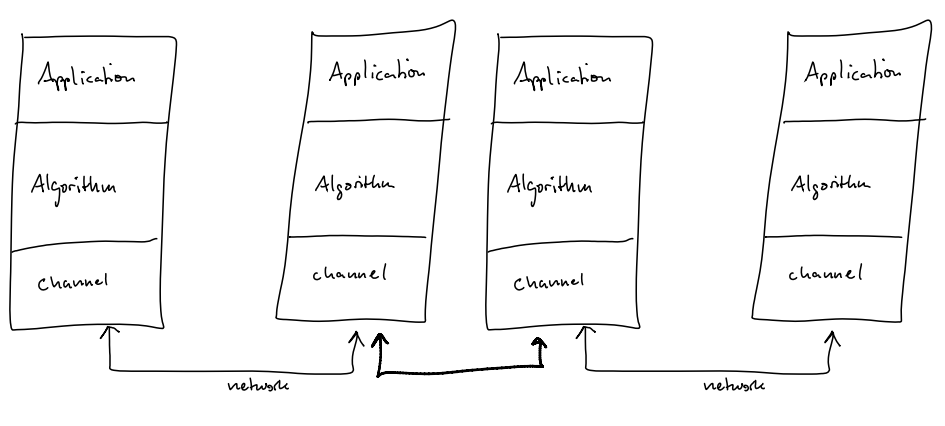 Application
Algorithm
channel
Application
Algorithm
channel
Application
Algorithm
channel
Application
Algorithm
channel
network
network